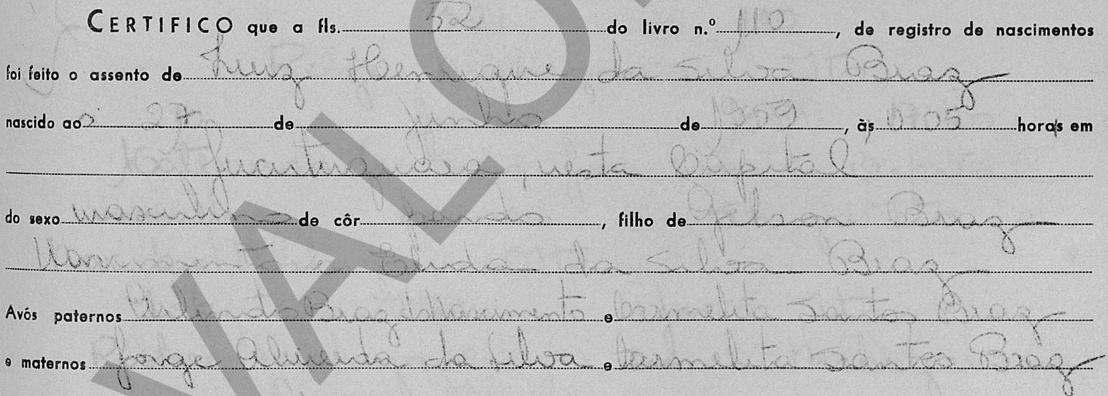 CERTIFICO que a fls. 52 do livro n.º 110, de registro de nascimentos
foi feito o assento de Luiz Henrique da Silva Braz
nascido aos 27 de junho de 1959, às 1705 horas em
Jucutuquara, nesta Capital
do sexo masculino de côr parda, filho de Gelson Braz
Nascimento e da Silva Braz
Avós paternos Braz do Nascimento e Carmelita Santos Braz
e maternos Jorge Almeida da Silva e Carmelita Santos Braz
VALO